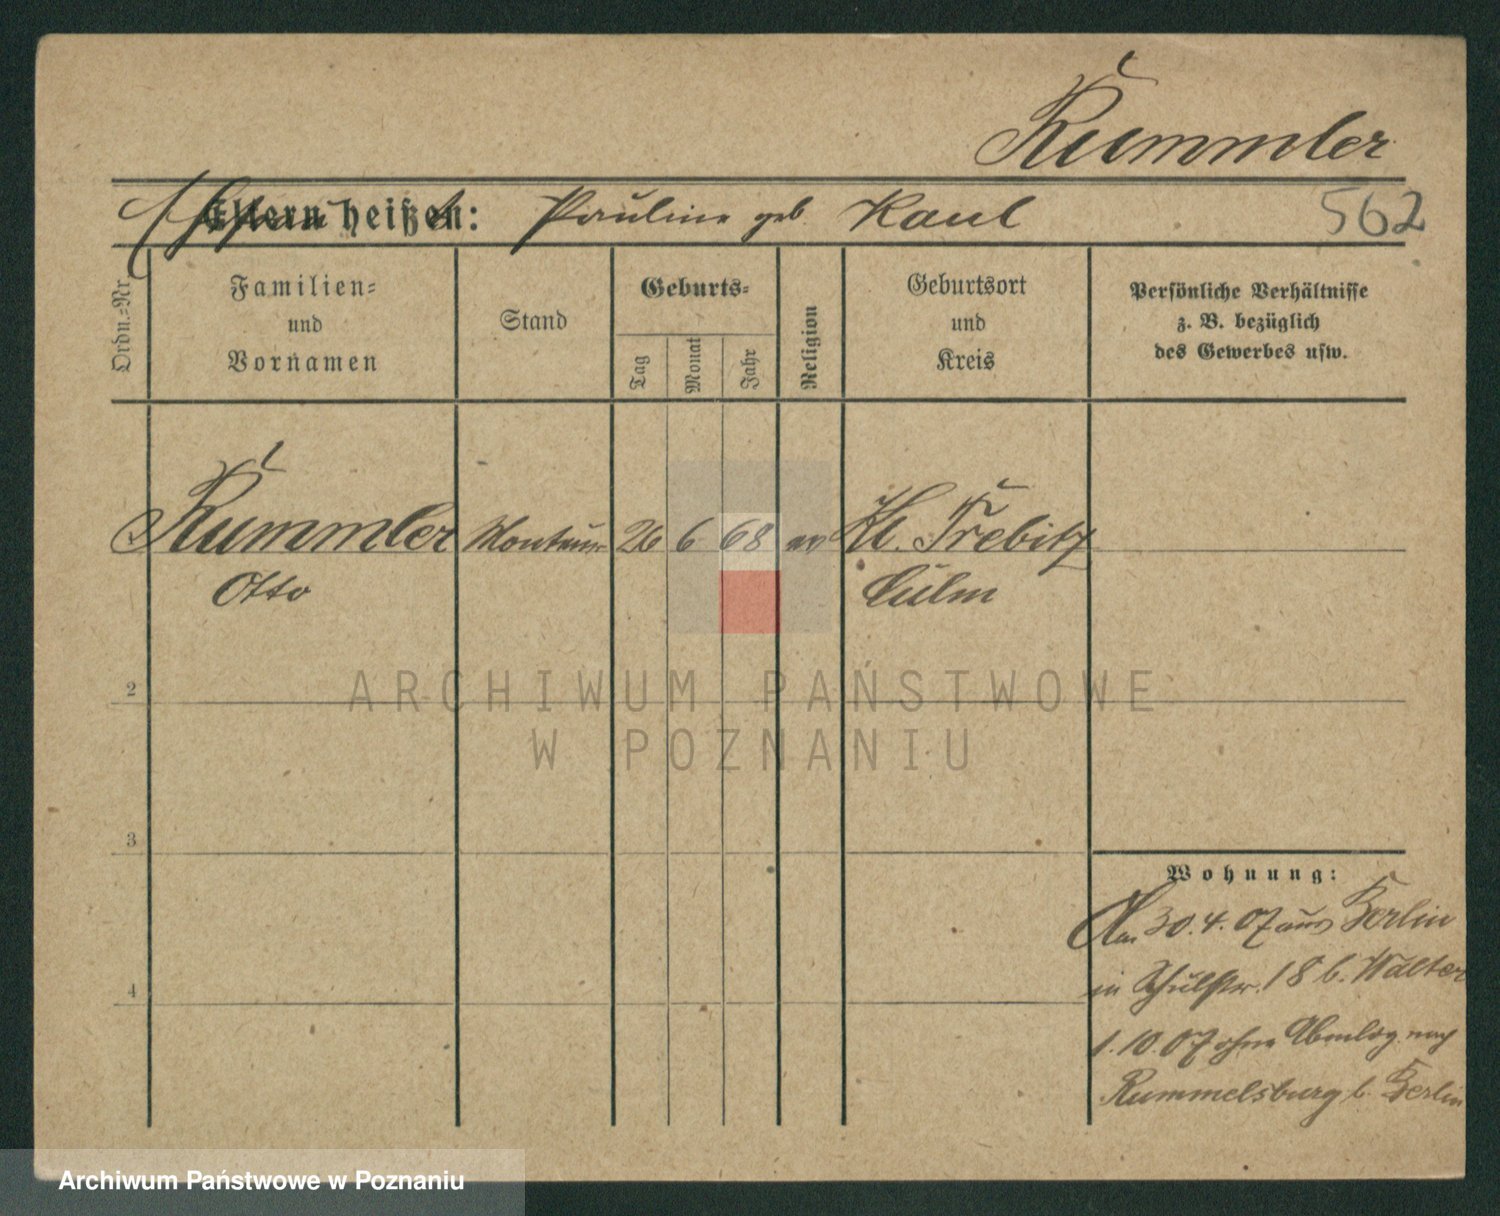 Kummler
Eltern heißen: Pauline geb. Kaul 562
Ordn.=Nr. Familien= und Vornamen Stand Geburts= Tag Monat Jahr Religion Geburtsort und Kreis Persönliche Verhältnisse z. B. bezüglich des Gewerbes usw.
Kummler Monteur 26 6 68 ev Kl. Trebitz
Otto Culm
2
3
4
Wohnung:
Am 30.4.07 aus Berlin
in Schulstr. 18 b. Walter
1.10.07 ohne Abmldg. nach
Rummelsburg b. Berlin
ARCHIWUM PAŃSTWOWE
W POZNANIU
Archiwum Państwowe w Poznaniu